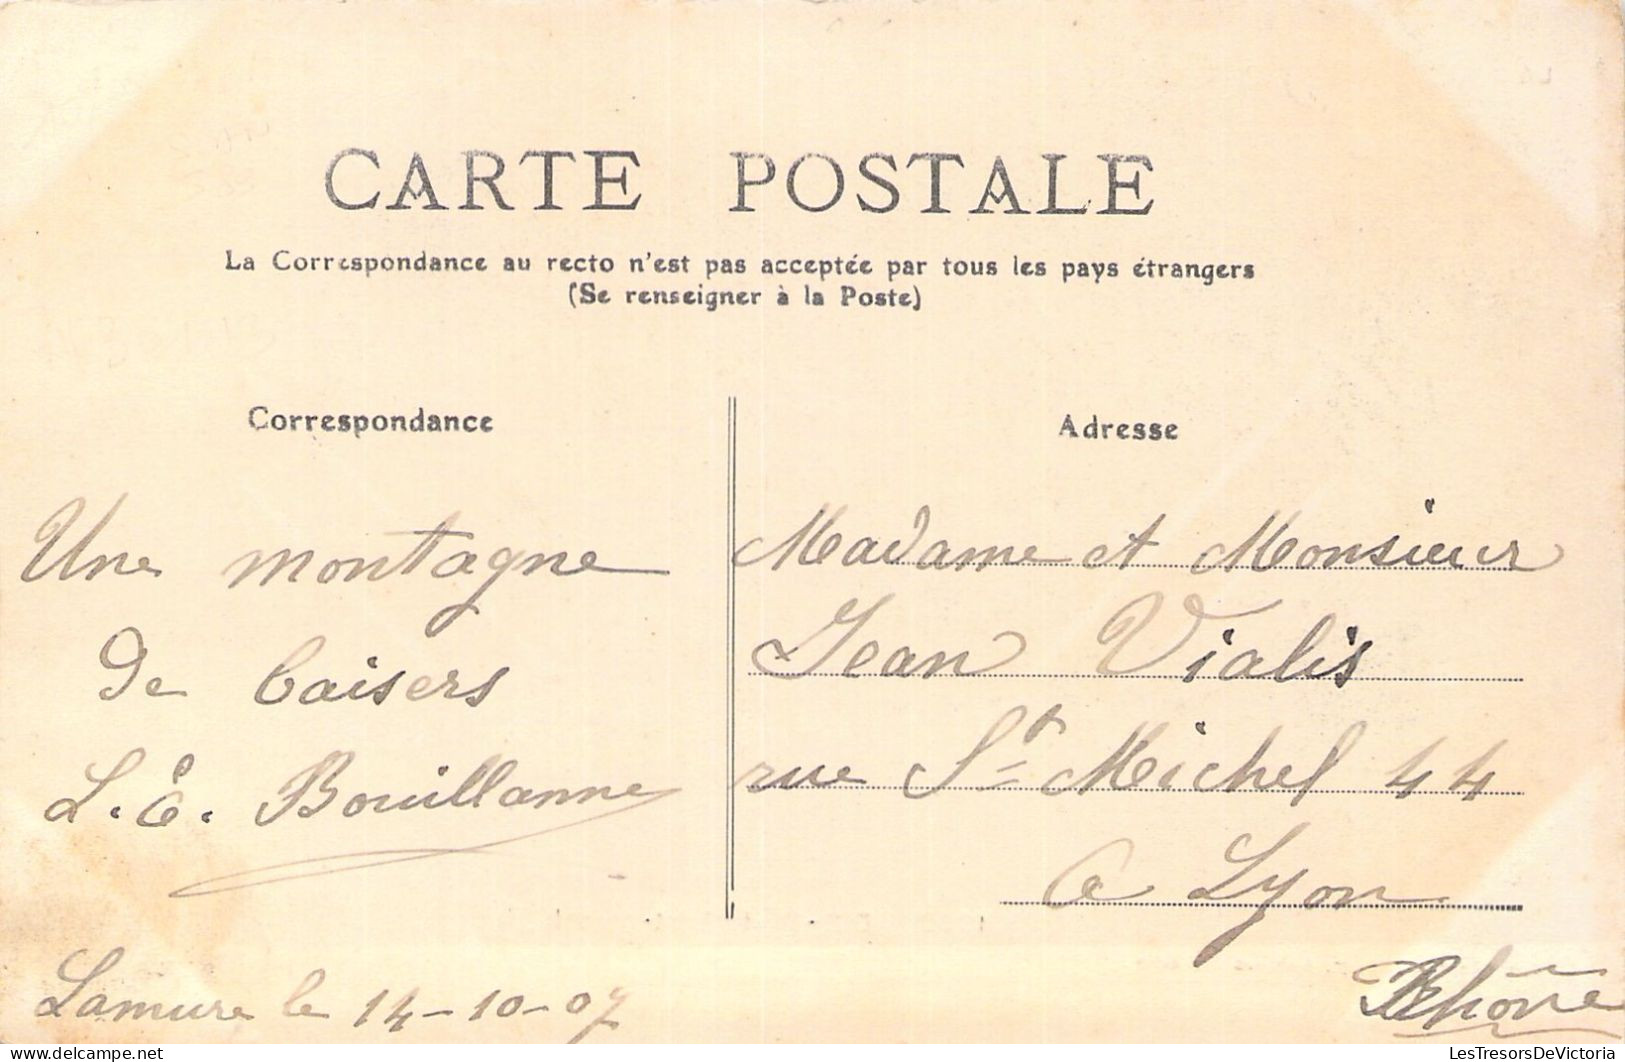 CARTE POSTALE
La Correspondance au recto n'est pas acceptée par tous les pays étrangers
(Se renseigner à la Poste)
Correspondance
Une montagne
de baisers
L. E. Bouillanne
Lamure le 14-10-07
Adresse
Madame et Monsieur
Jean Vialis
rue St Michel 44
à Lyon
Rhône
www.LesTresorsDeVictoria.com